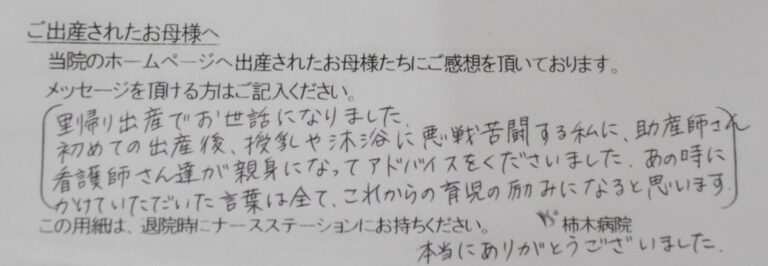 ご出産されたお母様へ
当院のホームページへ出産されたお母様たちにご感想を頂いております。
メッセージを頂ける方はご記入ください。
里帰り出産でお世話になりました。
初めての出産後、授乳や沐浴に悪戦苦闘する私に、助産師さん
看護師さん達が親身になってアドバイスをくださいました。あの時に
かけていただいた言葉は全て、これからの育児の励みになると思います。
この用細は、退院時にナースステーションにお持ちください。 柿木病院
本当にありがとうございました。